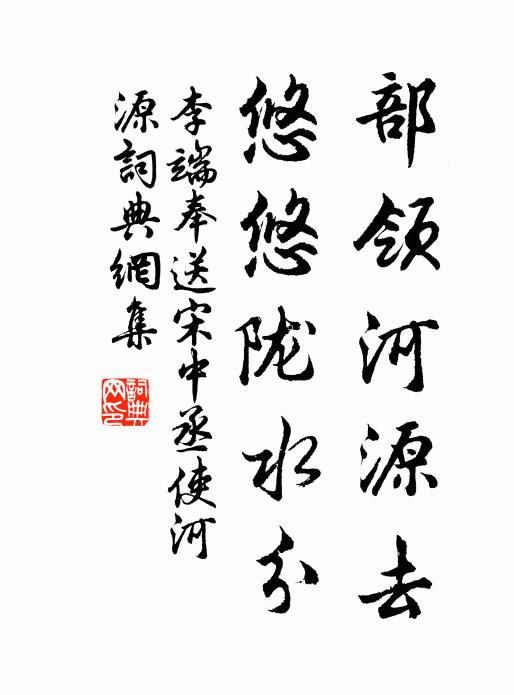 部领河源去
悠悠陇水分
李端奉送宋中丞使河
源詞典網集
詞典
网印